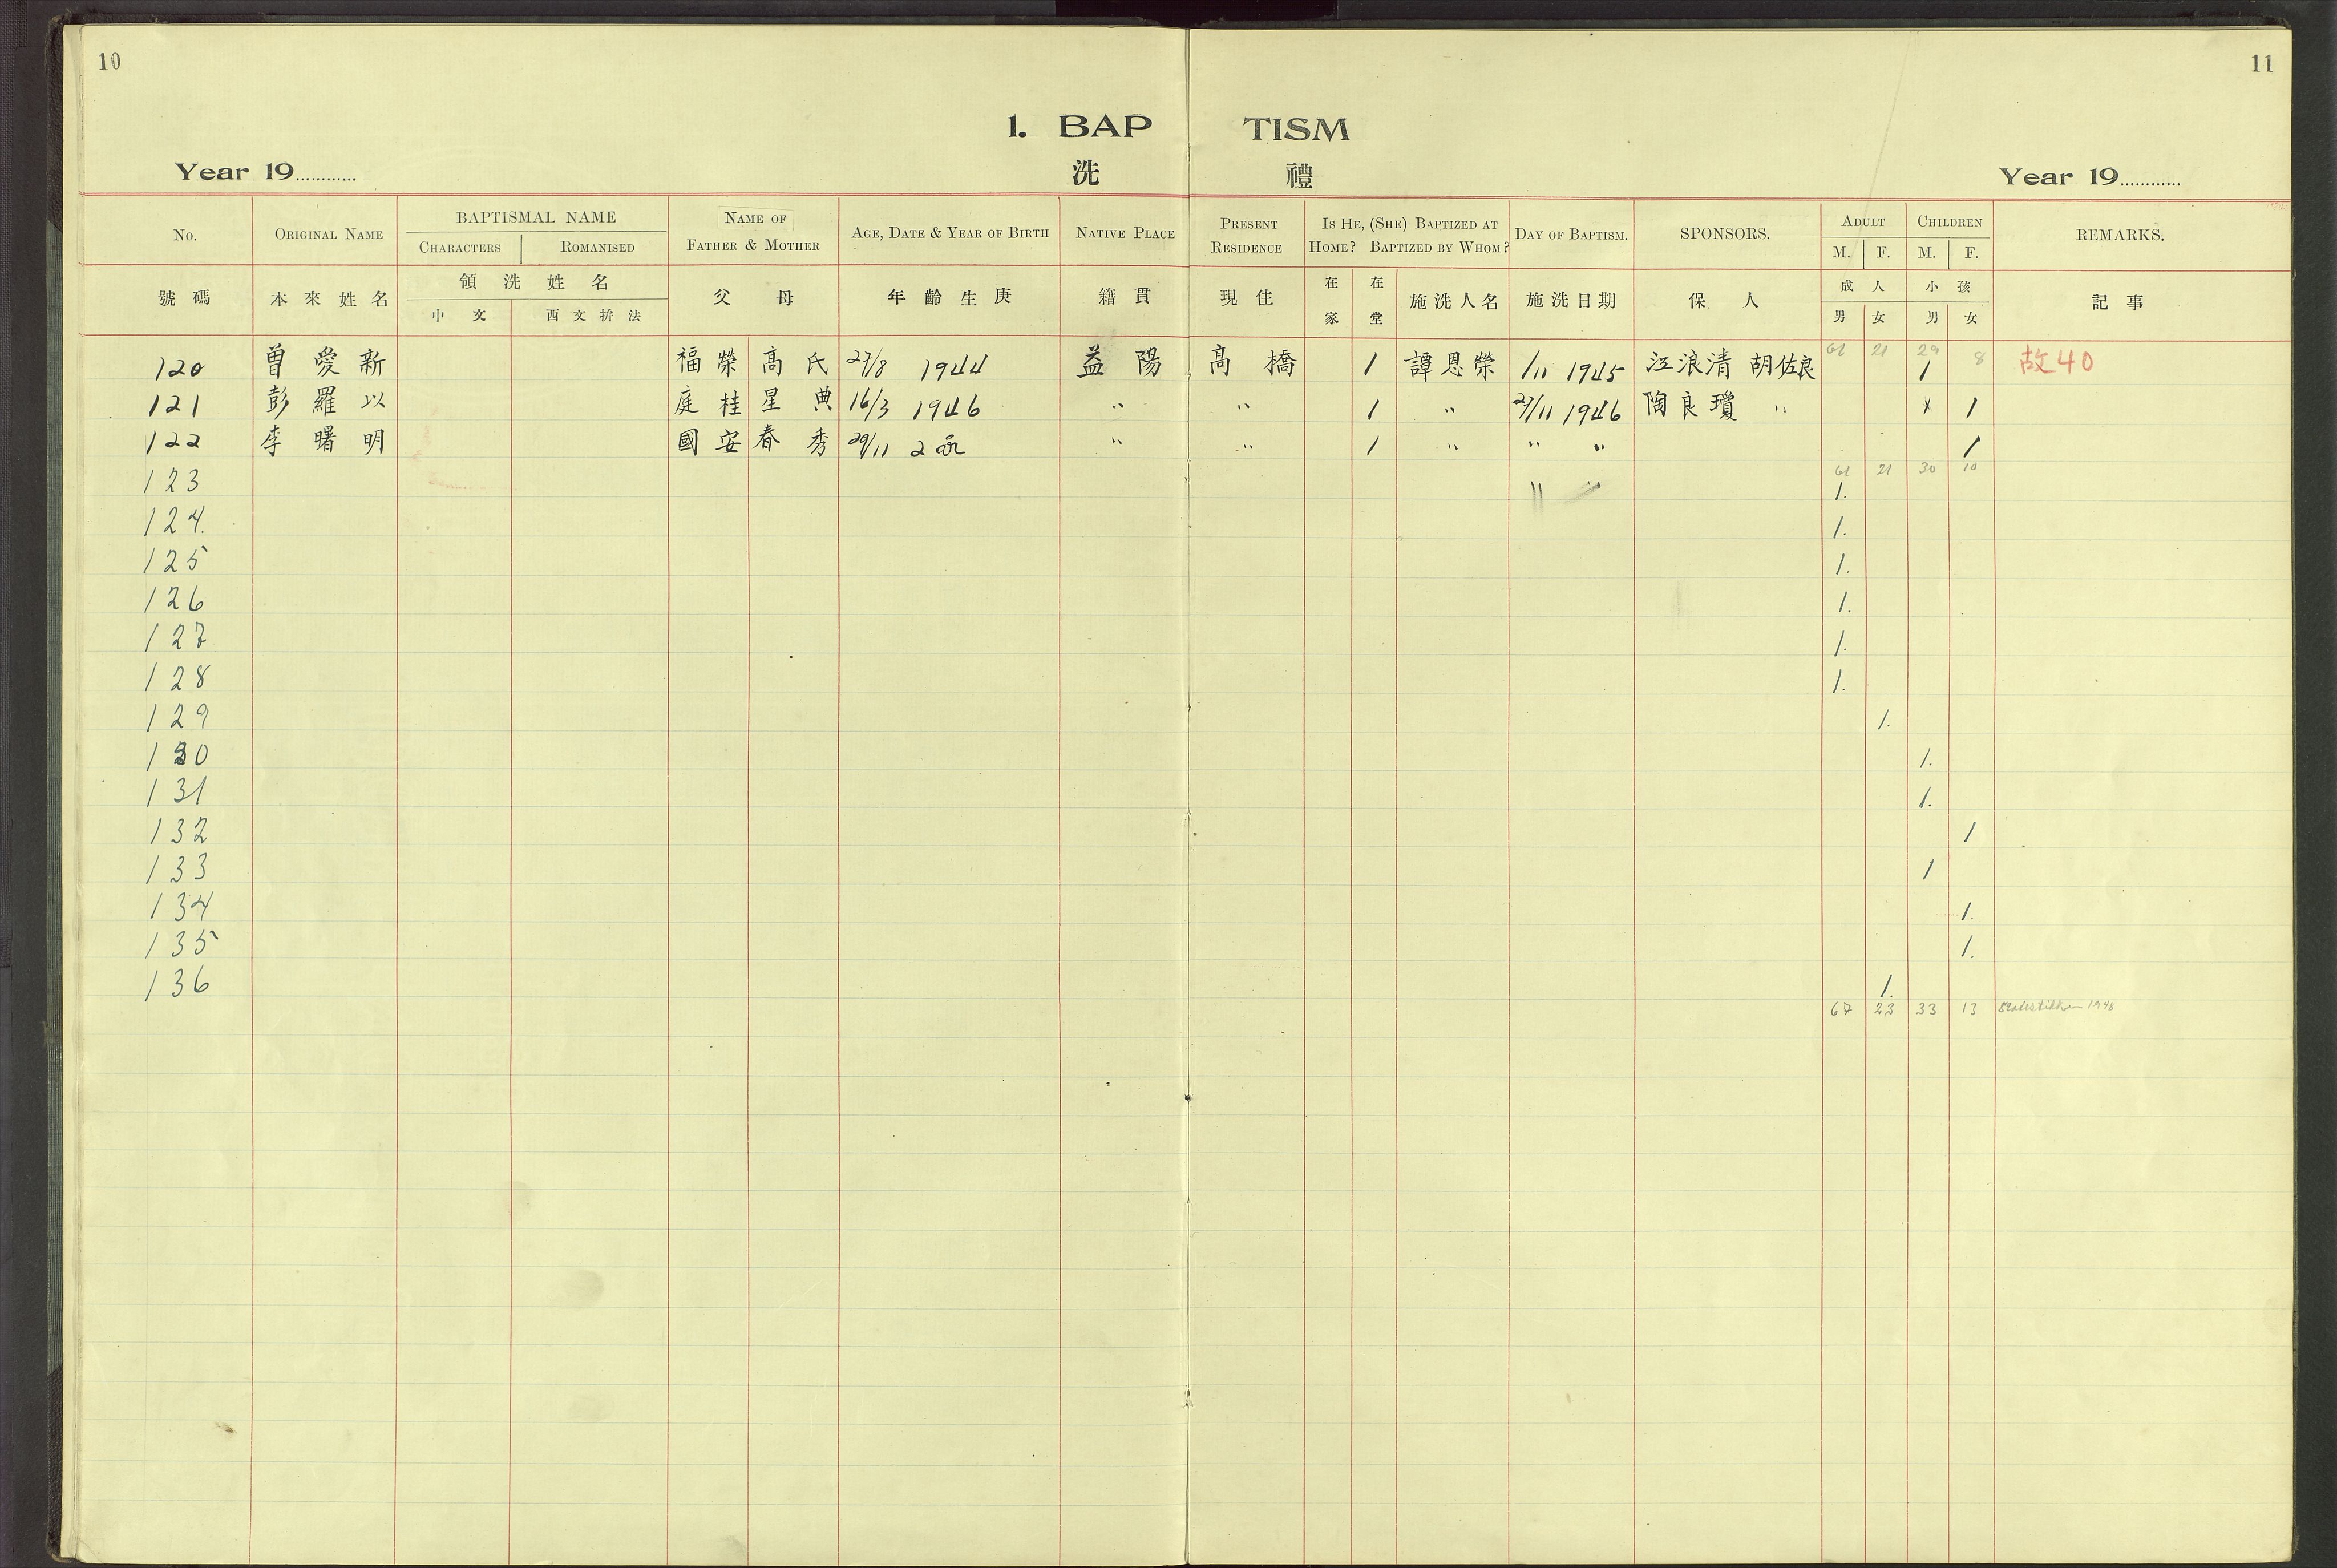 10
11
1. BAP TISM
Year 19............ 洗 禮 Year 19............
No. ORIGINAL NAME BAPTISMAL NAME NAME OF FATHER & MOTHER AGE, DATE & YEAR OF BIRTH NATIVE PLACE PRESENT RESIDENCE IS HE, (SHE) BAPTIZED AT HOME? BAPTIZED BY WHOM? DAY OF BAPTISM. SPONSORS. ADULT CHILDREN REMARKS.
CHARACTERS ROMANISED M. F. M. F.
號碼 本來姓名 領洗姓名 父 母 年齡生庚 籍貫 現住 在家 在堂 施洗人名 施洗日期 保人 成人 小孩 記事
中文 西文拚法 男 女 男 女
61 21 29 8
120 曾愛新 福榮 高氏 27/8 1944 益陽 高橋 1 譚恩榮 1/11 1945 江浪清 胡佐良 1 故40
121 彭羅以 庭桂 星典 16/3 1946 " " 1 " 27/11 1946 陶良瓊 " 1
122 李曙明 國安 春秀 29/11 2 " " 1 " " " 1
61 21 30 10
123 " " 1.
124. 1.
125 1.
126 1.
127 1.
128 1.
129 1.
130 1.
131 1.
132 1
133 1
134 1.
135 1.
136 1.
67 23 33 13 Statistikken 1948